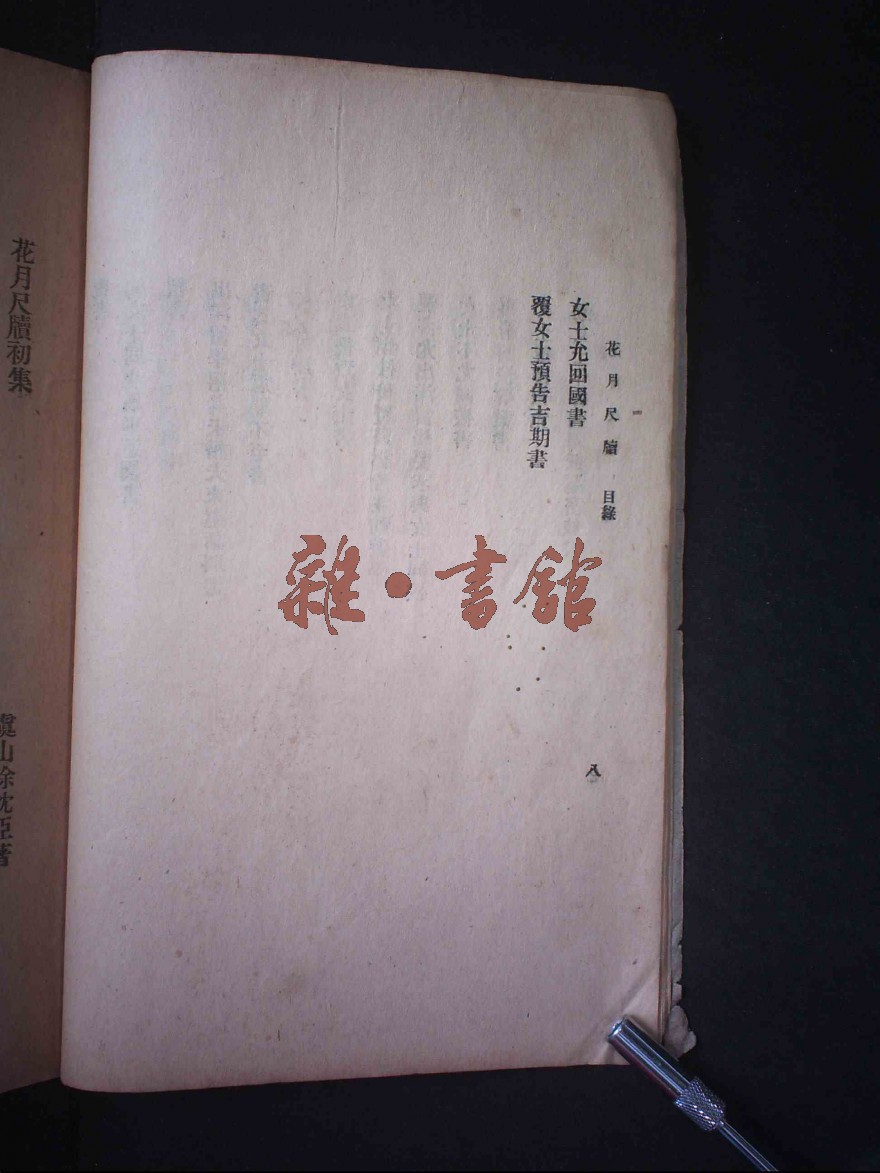 花月尺牘 目錄
八
女士允回國書
覆女士預告吉期書
雜·書館
花月尺牘初集
虞山徐枕亞著